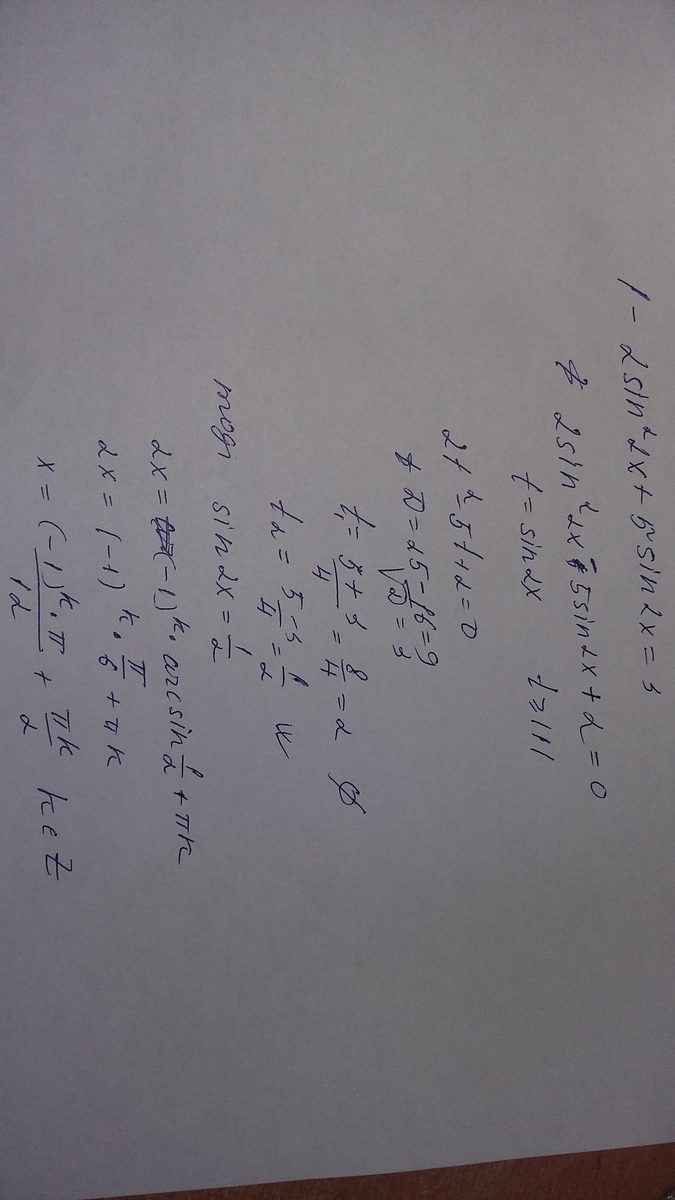 1 - 2sin²2x + 5sin2x = 3
2sin²2x - 5sin2x + 2 = 0
t = sin2x t ≥ |1|
2t² - 5t + 2 = 0
D = 25 - 16 = 9
√D = 3
t₁ = (5+3)/4 = 8/4 = 2 ∅
t2 = (5-3)/4 = 1/2
тогд sin2x = 1/2
2x = (-1)^k · arcsin 1/2 + πk
2x = (-1)^k · π/6 + πk
x = ((-1)^k · π)/12 + πk/2 k∈Z